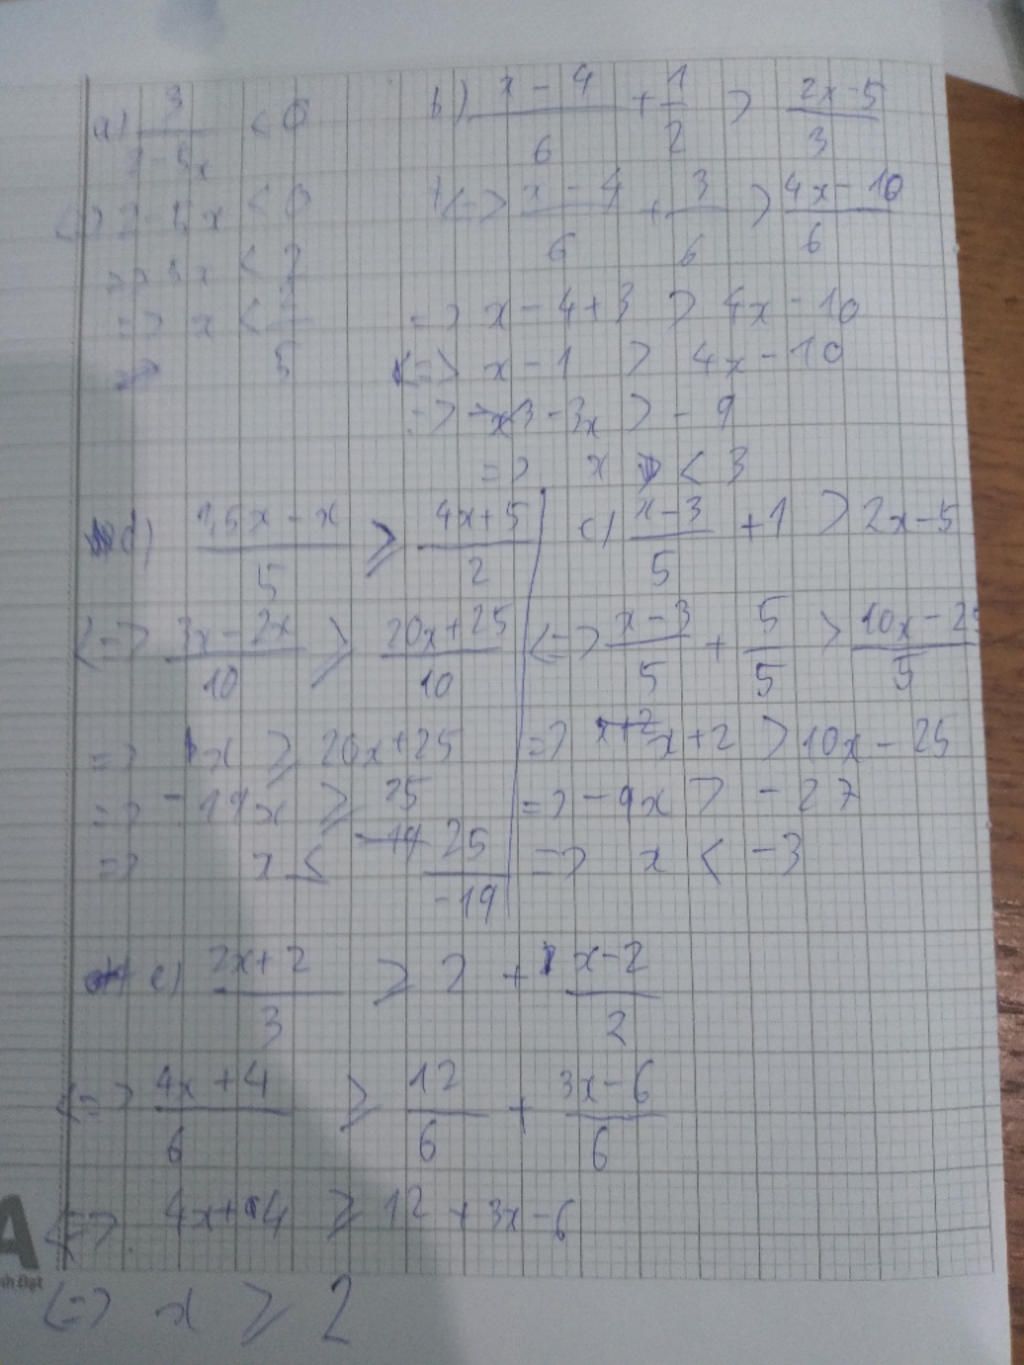 a) 3/(2-5x) < 0
<=> 2-5x < 0
=> 5x < 2
=> x < 2/5
b) (x-4)/6 + 1/2 > (2x-5)/3
<=> (x-4)/6 + 3/6 > (4x-10)/6
=> x-4+3 > 4x-10
<=> x-1 > 4x-10
=> -3x > -9
=> x < 3
d) (1,5x-x)/5 ≥ (4x+5)/2
<=> (3x-2x)/10 ≥ (20x+25)/10
=> x ≥ 20x+25
=> -19x ≥ 25
=> x ≤ 25/-19
c) (x-3)/5 + 1 > 2x-5
<=> (x-3)/5 + 5/5 > (10x-25)/5
=> x+2 > 10x-25
=> -9x > -27
=> x < -3
e) (2x+2)/3 ≥ 2 + (x-2)/2
<=> (4x+4)/6 ≥ 12/6 + (3x-6)/6
<=> 4x+4 ≥ 12+3x-6
<=> x ≥ 2